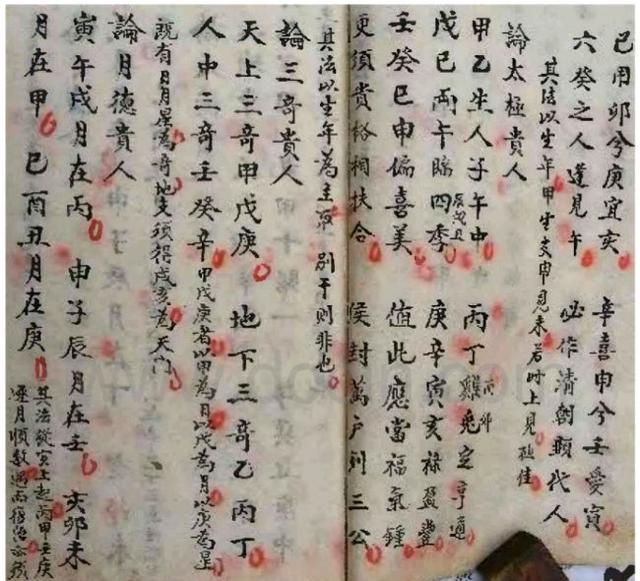 己用卯兮庚宜亥　辛喜申兮壬愛寅
六癸之人逢見午　必作清朝顯代人
其法以生年甲生支申見未若時上見極佳
論太極貴人
甲乙生人子午中　丙丁雞兔定亨通
戊己兩午臨四季　庚辛寅亥祿盈豐
壬癸巳申偏喜美　值此應當福氣鍾
更須貴格相扶合　侯封萬戶列三公
其法以生年為主取別干則非也
論三奇貴人
天上三奇甲戊庚　地下三奇乙丙丁
人中三奇壬癸辛　甲戊庚者以甲為日以戊為月以庚為星
既有日月星為奇地支須得戌亥為天門
論月德貴人
寅午戌月在丙　申子辰月在壬　亥卯未
月在甲　巳酉丑月在庚
其法從寅上起丙甲壬庚
逐月順數遇而復